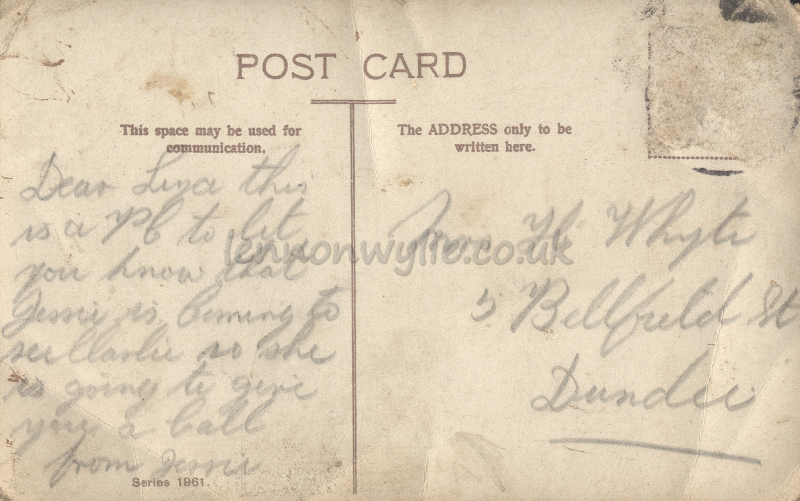 POST CARD
This space may be used for
communication.
The ADDRESS only to be
written here.
Dear Liza this
is a PC to let
you know that
Jessie is coming to
so she
is going to give
you a call
from Jessie
Whyte
5 Bellfield St
Dundee
lennonwylie.co.uk
Series 1961.